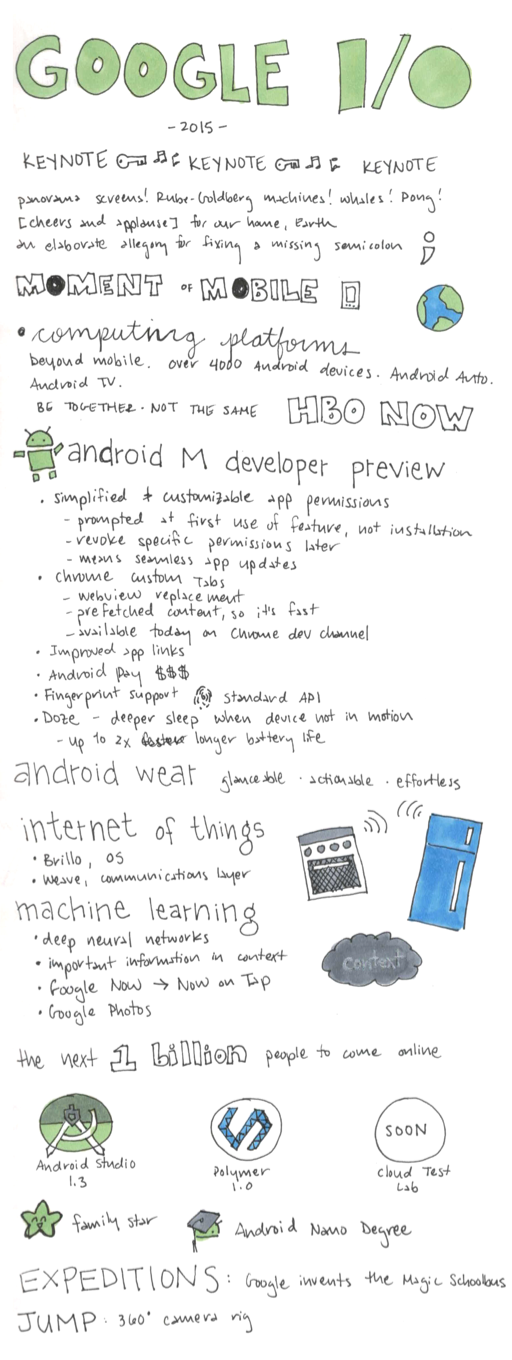 GOOGLE I/O
- 2015 -
KEYNOTE KEYNOTE KEYNOTE
panorama screens! Rube-Goldberg machines! whales! Pong!
[cheers and applause] for our home, Earth
an elaborate allegory for fixing a missing semicolon ;
MOMENT OF MOBILE
• computing platforms
beyond mobile. over 4000 Android devices. Android Auto.
Android TV.
BE TOGETHER · NOT THE SAME HBO NOW
android M developer preview
• simplified + customizable app permissions
- prompted at first use of feature, not installation
- revoke specific permissions later
- means seamless app updates
• Chrome custom Tabs
- webview replacement
- prefetched content, so it's fast
- available today on Chrome dev channel
• Improved app links
• Android Pay $$$
• Fingerprint support standard API
• Doze - deeper sleep when device not in motion
- up to 2x longer battery life
android wear glanceable · actionable · effortless
internet of things
• Brillo, OS
• Weave, communications layer
machine learning
• deep neural networks
• important information in context
• Google Now → Now on Tap
• Google Photos
context
the next 1 billion people to come online
Android Studio
1.3
Polymer
1.0
SOON
Cloud Test
Lab
family star
Android Nano Degree
EXPEDITIONS: Google invents the Magic Schoolbus
JUMP: 360° camera rig